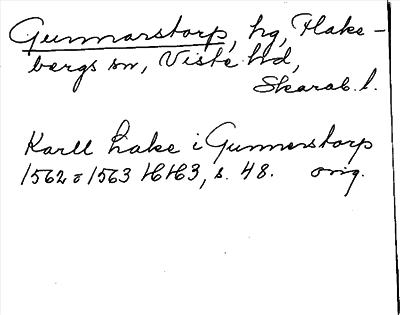 Gunnarstorp, hg, Flake-
bergs sn, Viste hd,
Skarab. l.
Karll Lake i Gunnerstorp
1562 o 1563 HH3, s. 48. orig.